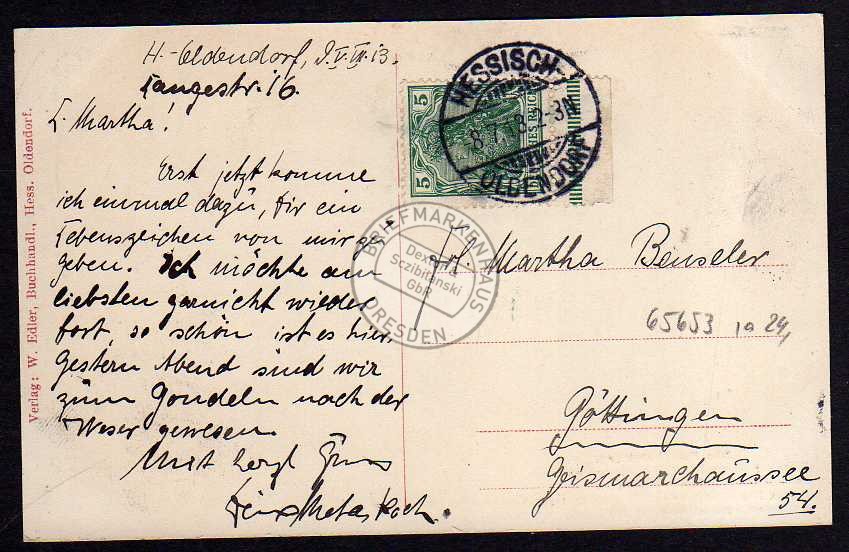 H.-Oldendorf,
Langestr. 16.
L. Martha!
Erst jetzt komme
ich einmal dazu, Dir ein
Lebenszeichen von mir zu
geben. Ich möchte am
liebsten garnicht wieder
fort, so schön ist es hier.
Gestern Abend sind wir
zum Gondeln nach der
Weser gewesen.
Mit herzl Gruss
Koch.
Verlag: W. Edler, Buchhandl., Hess. Oldendorf.
HESSISCH-
8.7.13.2-3N
OLDENDORF
5
5
BRIEFMARKENHAUS
Dexter
Sczibilanski
GbR
DRESDEN
Frl. Martha Benseler
65653
Göttingen
Geismarchaussee
54.